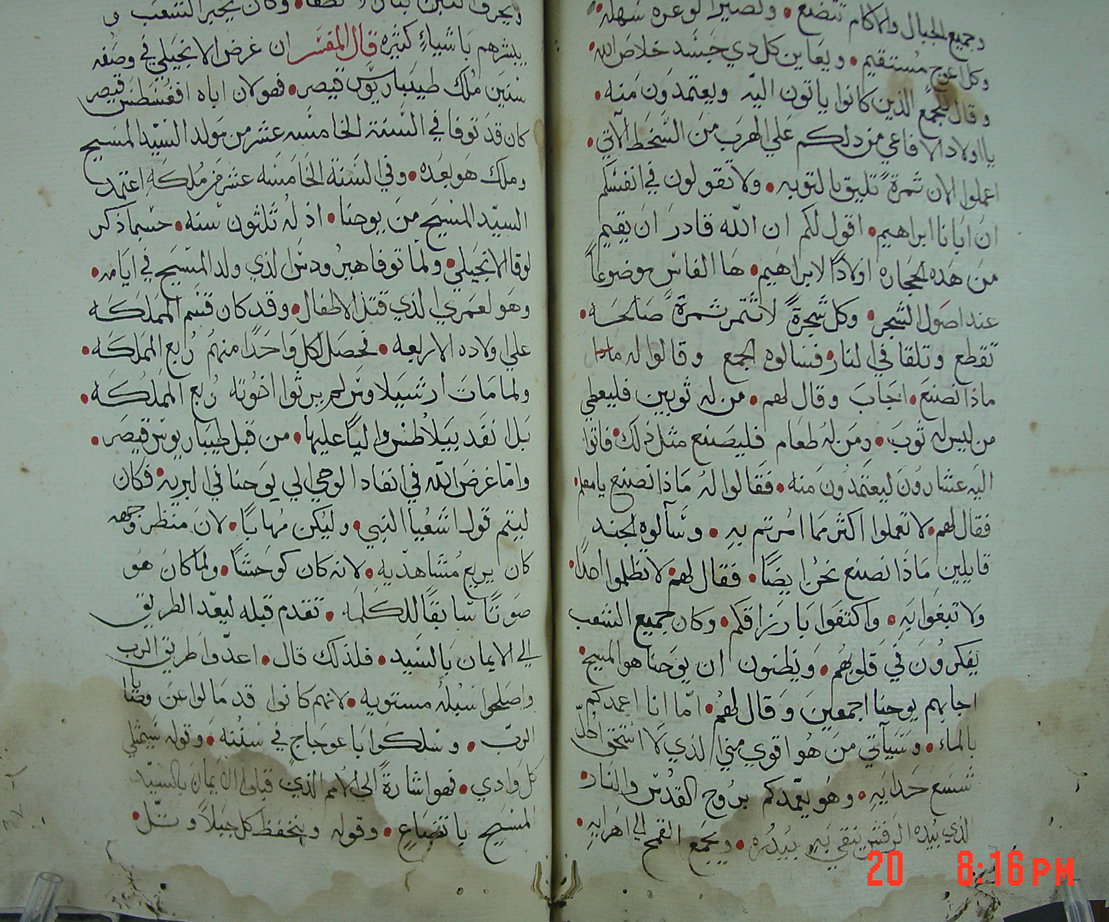 وجميع الجبال والاكام تتضع • وتصير الوعره سهله •
وكل اعوج مستقيم • ويعاين كل دي جسد خلاص الله
وقال للجمع الذين كانوا ياتون اليه ويعتمدون منه •
يا اولاد الافاعي من دلكم علي الهرب من السخط الاتي •
اعملوا الان ثمرة تليق بالتوبه • ولا تقولون في انفسكم
ان ابانا ابراهيم • اقول لكم ان الله قادر ان يقيم
من هده الحجاره اولادًا لابراهيم • ها الفاس موضوعاً
عند اصول الشجر • وكل شجرةً لا تثمر ثمرةً صالحه •
تقطع وتلقا في النار • فسالوه الجمع وقالوا له ماذا
ماذا نصنع • اجاب وقال لهم • من له ثوبين فليعطي
من ليس له ثوب • ومن له طعام فليصنع مثل ذلك • فاتوا
اليه عشارون ليعتمدون منه • فقالوا له ماذا نصنع يا معلم •
فقال لهم • لا تعملوا اكثر مما امرتم به • وسالوه الجند
قايلين ماذا نصنع نحن ايضًا • فقال لهم • لا تظلموا احدًا •
ولا تبغوا به • واكتفوا بارزاقكم • وكان جميع الشعب
يفكرون في قلوبهم • ويظنون ان يوحنا هو المسيح •
اجابهم يوحنا اجمعين وقال لهم • امّا انا اعمدكم
بالماء • وسياتي من هو اقوي مني الذي لا استحق احلّ
شسع حدايه • وهو يعمدكم بروح القدس والنار •
لذي بيده الرفش ينقي به بيدره • ويجمع القمح الي اهرايه •
ويحرق التبن بنار لا تطفا • وكان يخبر الشعب و
يبشرهم باشياءٍ كثيره قال المفسر ان غرض الانجيلي في وصفه
سنين مُلك طيباريوس قيصر • فهو لان اباه اغسطس قيصر
كان قد توفا في السنة الخامسه عشر من مولد السيد المسيح
وملك هو بعده • وفي السنة الخامسه عشر من ملكه اعتمد
السيد المسيح من يوحنا • اذ له ثلثون سنه • حسبما ذكر
لوقا الانجيلي • ولما توفا هيرودس الذي ولد المسيح في ايامه •
وهو لعمري الذي قتل الاطفال • وقد كان قسم المملكه
علي ولاده الاربعه • فحصل لكل واحدًا منهم رُبع المملكه •
ولما مات ارشيلاوس لم يرثوا اخوته رُبع المملكه •
بل انفد بيلاطس والياً عليها • من قبل طيباريوس قيصر •
وامّا غرض الله في انفاد الوحي الي يوحنا في البريه • فكان
ليتم قول اشعيا النبي • وليكن مُهابًا • لان منظر وجهه
كان يريع مُشاهديه • لانه كان كوحشًا • ولما كان هو
صوتًا سابقًا للكلمه • تقدم قبله ليعدّ الطريق
الي الايمان بالسيد • فلذلك قال • اعدّوا طريق الرب
واصلحوا سبله مستويه • لانهم كانوا قد مالوا عن وصايا
الرب • وسلكوا باعوجاج في سننه • وقوله سيمتلي
كل وادي • فهو اشارةً الي الامم الذي قبلوا الايمان بالسيد
المسيح باتضاعٍ • وقوله وينخفظ كل جبلاً وتل •